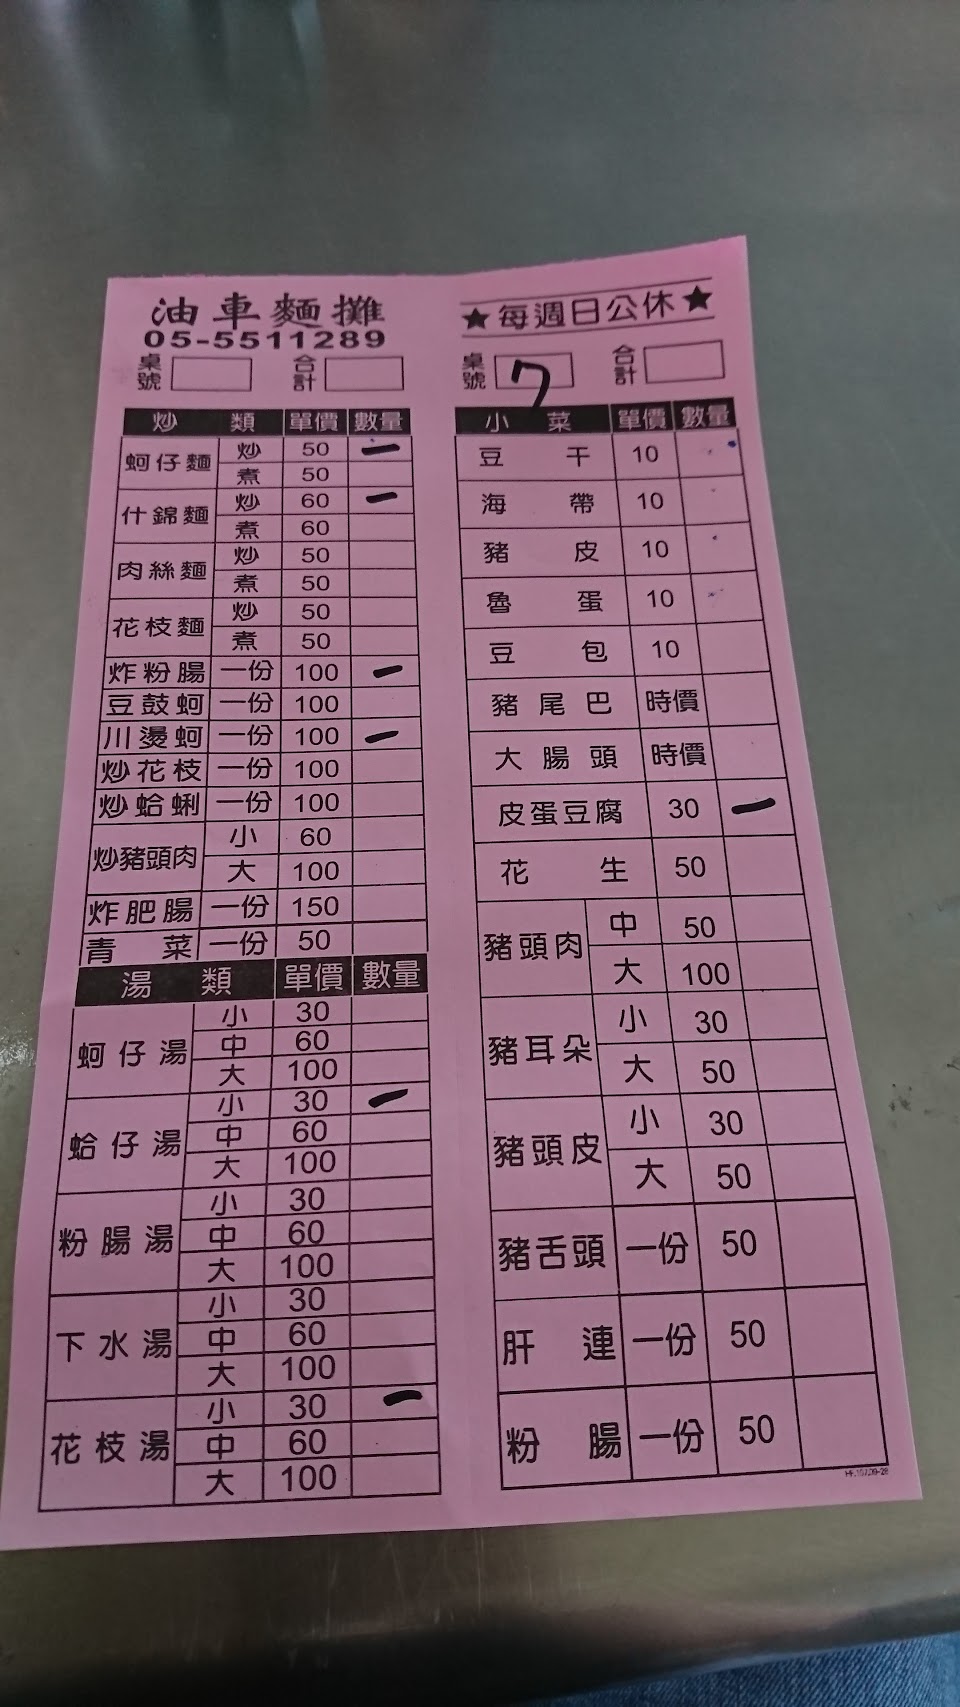 油車麵攤
05-5511289
桌號 合計
炒類 單價 數量
蚵仔麵 炒 50 一
煮 50
什錦麵 炒 60 一
煮 60
肉絲麵 炒 50
煮 50
花枝麵 炒 50
煮 50
炸粉腸 一份 100 一
豆鼓蚵 一份 100
川燙蚵 一份 100 一
炒花枝 一份 100
炒蛤蜊 一份 100
炒豬頭肉 小 60
大 100
炸肥腸 一份 150
青菜 一份 50
湯類 單價 數量
蚵仔湯 小 30
中 60
大 100
蛤仔湯 小 30 一
中 60
大 100
粉腸湯 小 30
中 60
大 100
下水湯 小 30
中 60
大 100
花枝湯 小 30 一
中 60
大 100
★每週日公休★
桌號 7 合計
小菜 單價 數量
豆干 10
海帶 10
豬皮 10
魯蛋 10
豆包 10
豬尾巴 時價
大腸頭 時價
皮蛋豆腐 30 一
花生 50
豬頭肉 中 50
大 100
豬耳朵 小 30
大 50
豬頭皮 小 30
大 50
豬舌頭 一份 50
肝連 一份 50
粉腸 一份 50